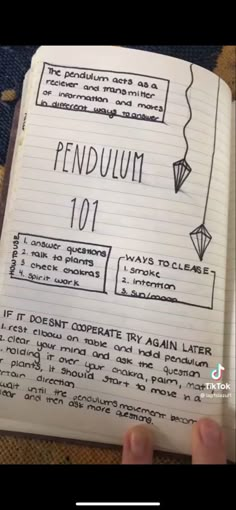 The pendulum acts as a
reciever and transmitter
of information and moves
in different ways to answer
PENDULUM
101
HOW TO USE
1. answer questions
2. talk to plants
3. check chakras
4. spirit work
WAYS TO CLEASE
1. smoke
2. intention
3. sun/moon
IF IT DOESNT COOPERATE TRY AGAIN LATER
1. rest elbow on table and hold pendulum
2. clear your mind and ask the question
holding it over your chakra, palm, mat
r plants, it should start to move in a
rtain direction
wait until the pendulums movement becom
lear and then ask more questions.
TikTok